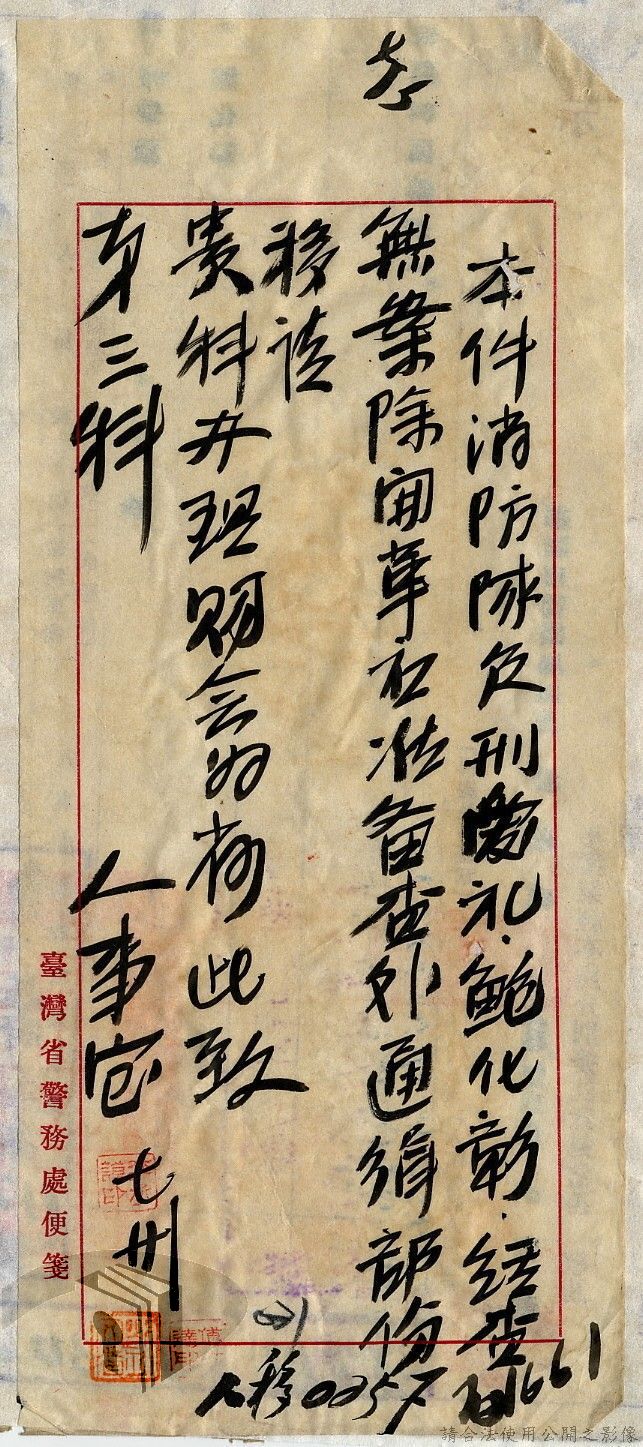 本件消防隊員刑愛礼.鮑化彰.經查
無案除開革應准备查外通緝部份
移請
貴科办理賜会為荷此致
第三科
人事室 七 卅
臺灣省警務處便箋
請合法使用公開之影像